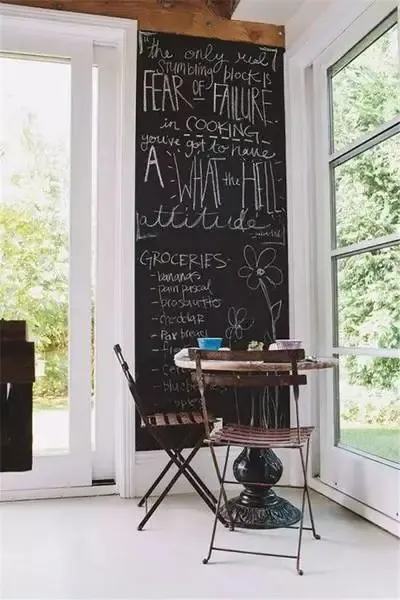 "the only real
stumbling block is
FEAR OF FAILURE
in COOKING
you've got to have
A WHAT the HELL
attitude
GROCERIES
- bananas
- pain pascal
- cheddar
- blueb